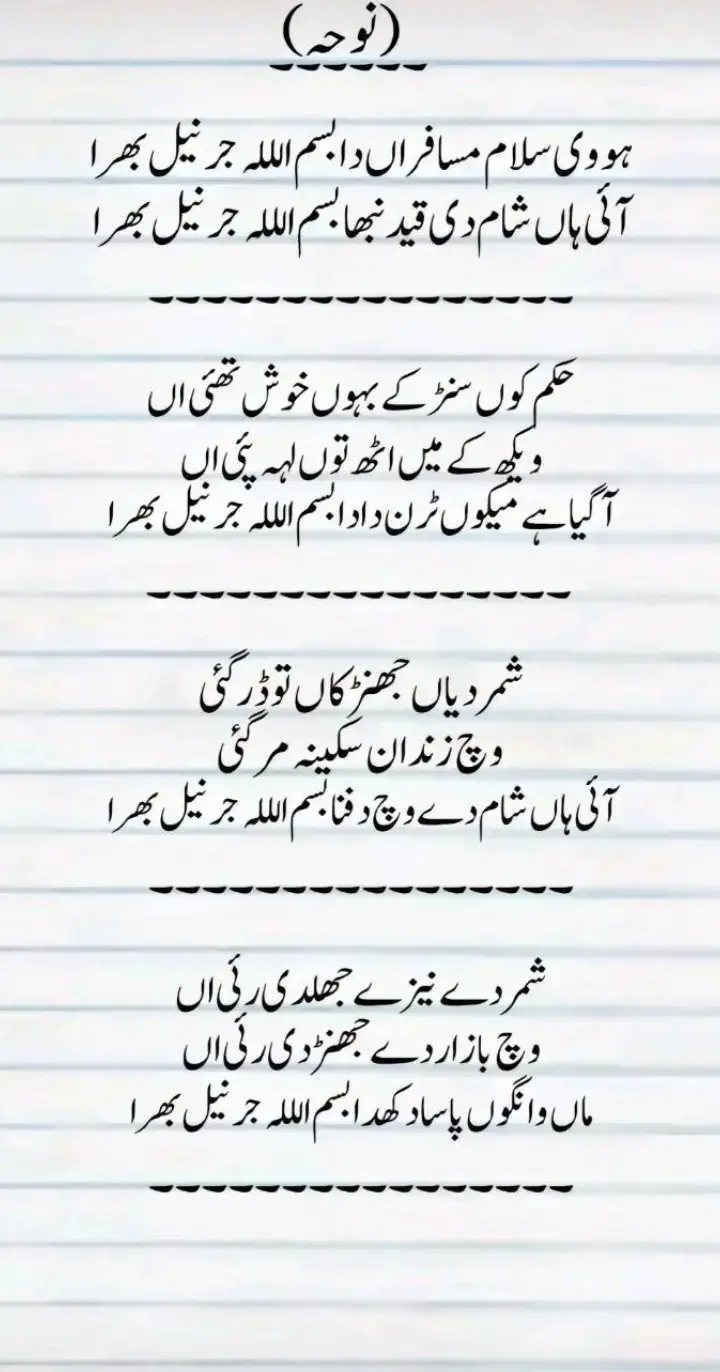 (نوحہ)
ہووی سلام مسافراں دا بسم الللہ جرنیل بھرا
آئی ہاں شام دی قید نبھا بسم الللہ جرنیل بھرا
حکم کوں سنڑ کے بہوں خوش تھئی اں
ویکھ کے میں اٹھ توں لہہ پئی اں
آگیا ہے میکوں ٹرن دا دا بسم الللہ جرنیل بھرا
شمر دیاں جھنڑکاں توڈر گئی
وچ زندان سکینہ مر گئی
آئی ہاں شام دے وچ دفنا بسم الللہ جرنیل بھرا
شمر دے نیزے جھلدی رئی اں
وچ بازار دے جھنڑدی رئی اں
ماں وانگوں پاسا دکھدا بسم الللہ جرنیل بھرا